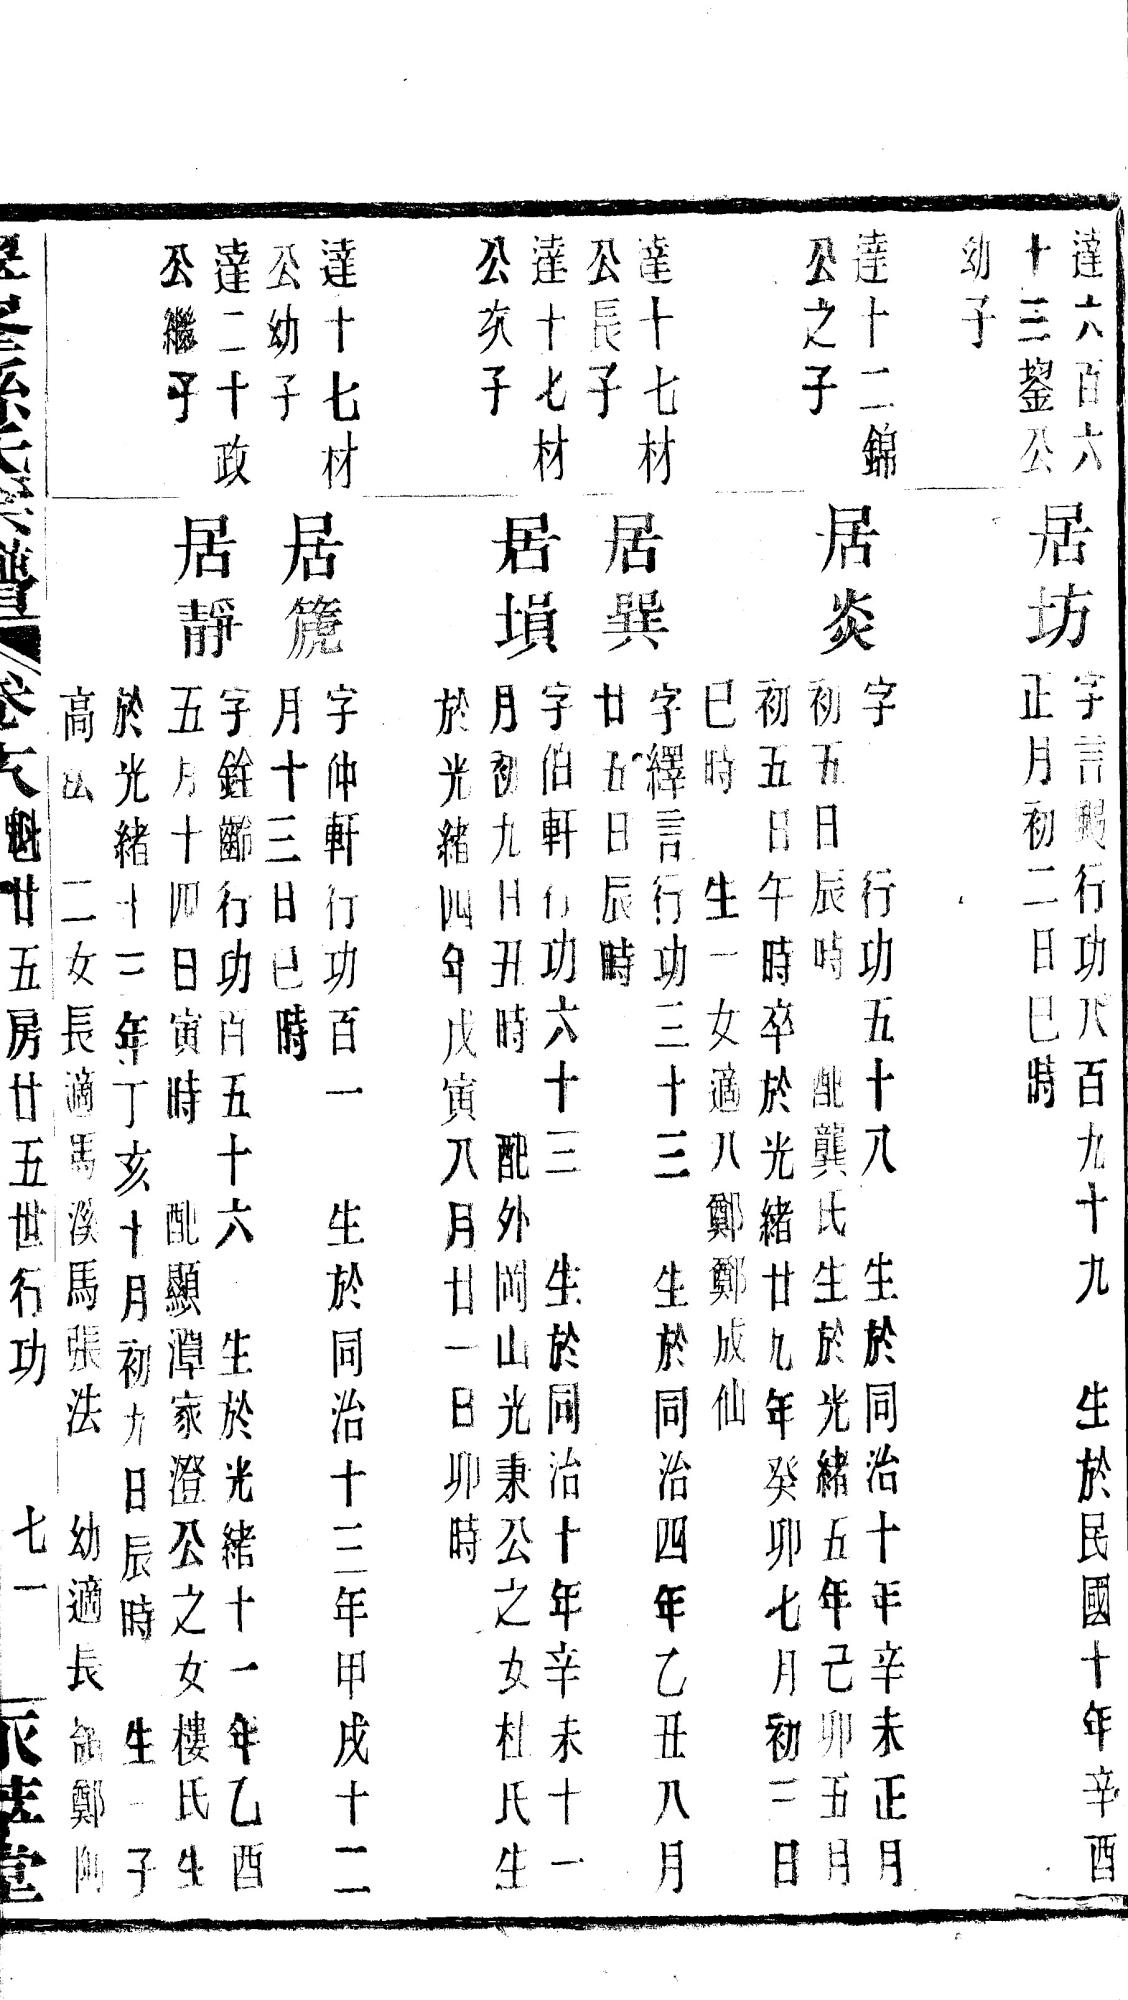 達六百六
十三鋆公
幼子
居坊
字言颺行功八百九十九　生於民國十年辛酉
正月初二日巳時
達十二錦
公之子
居炎
字　行功五十八　生於同治十年辛未正月
初五日辰時　配龔氏生於光緒五年己卯五月
初五日午時卒於光緒廿九年癸卯七月初三日
巳時　生一女適八鄭鄭成仙
達十七材
公長子
居巽
字繹言行功三十三　生於同治四年乙丑八月
廿五日辰時
達十七材
公次子
居塤
字伯軒行功六十三　生於同治十年辛未十一
月初九日丑時　配外岡山光秉公之女杜氏生
於光緒四年戊寅八月廿一日卯時
達十七材
公幼子
居篪
字仲軒行功百一　生於同治十三年甲戌十二
月十三日巳時
達二十政
公繼子
居靜
字銓鄉行功百五十六　生於光緒十一年乙酉
五月十四日寅時　配顯潭家澄公之女樓氏生
於光緒十三年丁亥十月初九日辰時　生一子
高法　二女長適馬溪馬張法　幼適長鄭
孫氏宗譜
卷六魁廿五房廿五世行功　七一
永慕堂